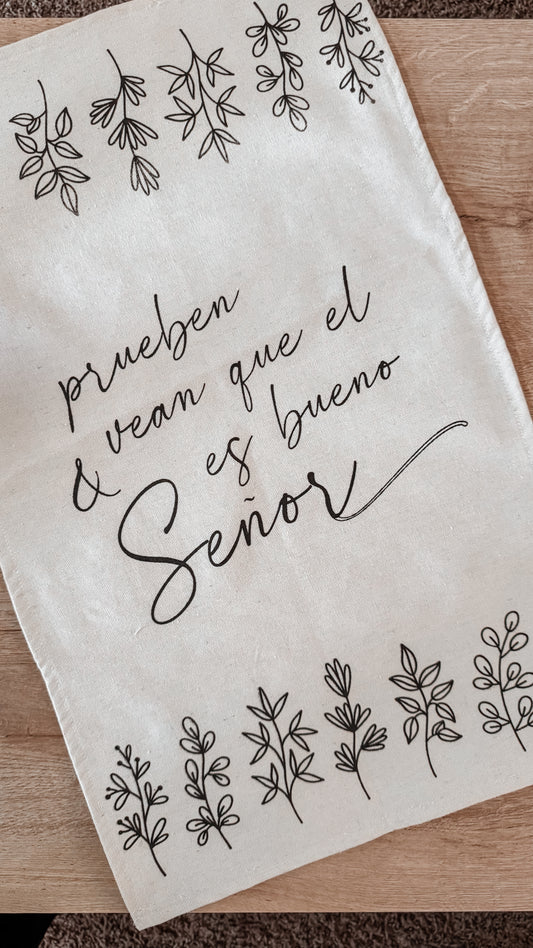 prueben
& vean que el
es bueno
Señor